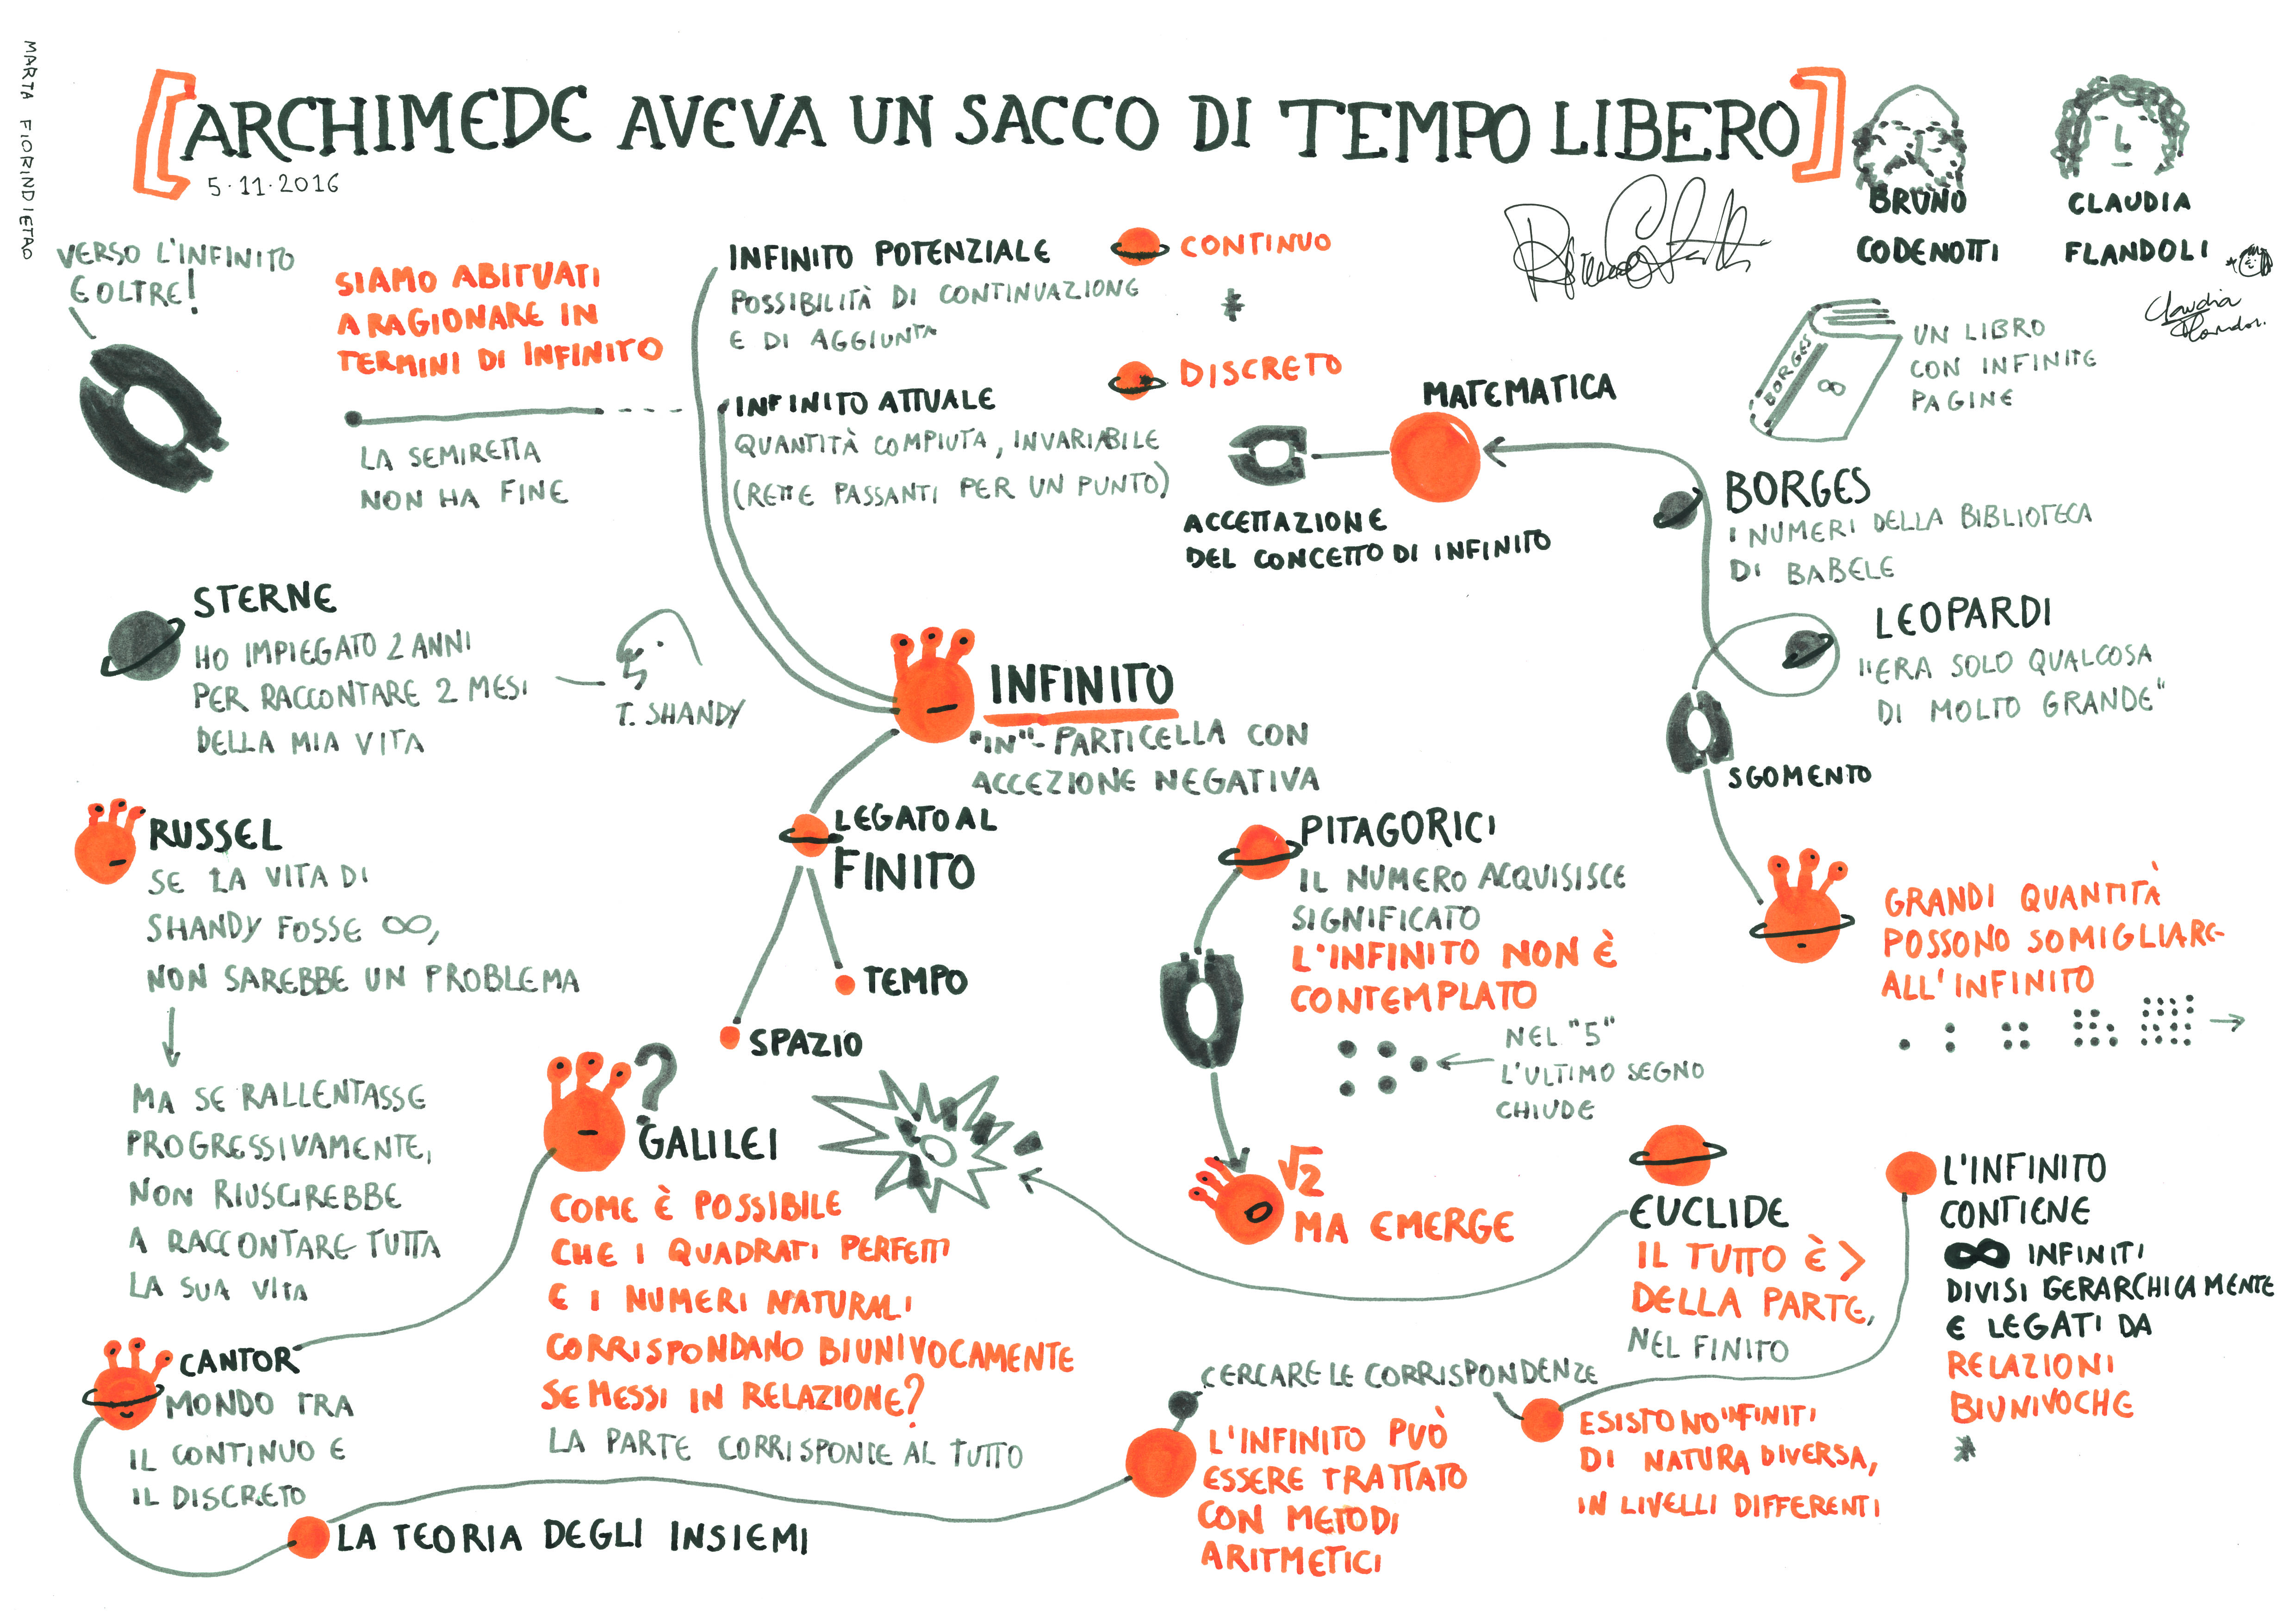 MARTA FIORINDIETAO
[ARCHIMEDE AVEVA UN SACCO DI TEMPO LIBERO]
5·11·2016
BRUNO
CODENOTTI
CLAUDIA
FLANDOLI
Claudia
VERSO L'INFINITO
E OLTRE!
SIAMO ABITUATI
A RAGIONARE IN
TERMINI DI INFINITO
LA SEMIRETTA
NON HA FINE
INFINITO POTENZIALE
POSSIBILITÀ DI CONTINUAZIONE
E DI AGGIUNTA
INFINITO ATTUALE
QUANTITÀ COMPIUTA, INVARIABILE
(RETTE PASSANTI PER UN PUNTO)
CONTINUO
*
DISCRETO
MATEMATICA
ACCETTAZIONE
DEL CONCETTO DI INFINITO
BORGES
∞
UN LIBRO
CON INFINITE
PAGINE
BORGES
I NUMERI DELLA BIBLIOTECA
DI BABELE
LEOPARDI
"ERA SOLO QUALCOSA
DI MOLTO GRANDE"
SGOMENTO
GRANDI QUANTITÀ
POSSONO SOMIGLIARE
ALL'INFINITO
STERNE
HO IMPIEGATO 2 ANNI
PER RACCONTARE 2 MESI
DELLA MIA VITA
T. SHANDY
INFINITO
"IN"- PARTICELLA CON
ACCEZIONE NEGATIVA
LEGATO AL
FINITO
TEMPO
SPAZIO
RUSSEL
SE LA VITA DI
SHANDY FOSSE ∞,
NON SAREBBE UN PROBLEMA
MA SE RALLENTASSE
PROGRESSIVAMENTE,
NON RIUSCIREBBE
A RACCONTARE TUTTA
LA SUA VITA
PITAGORICI
IL NUMERO ACQUISISCE
SIGNIFICATO
L'INFINITO NON È
CONTEMPLATO
NEL "5"
L'ULTIMO SEGNO
CHIUDE
√2
MA EMERGE
?
GALILEI
COME È POSSIBILE
CHE I QUADRATI PERFETTI
E I NUMERI NATURALI
CORRISPONDANO BIUNIVOCAMENTE
SE MESSI IN RELAZIONE?
LA PARTE CORRISPONDE AL TUTTO
EUCLIDE
IL TUTTO È >
DELLA PARTE,
NEL FINITO
CANTOR
MONDO TRA
IL CONTINUO E
IL DISCRETO
LA TEORIA DEGLI INSIEMI
CERCARE LE CORRISPONDENZE
L'INFINITO PUÒ
ESSERE TRATTATO
CON METODI
ARITMETICI
ESISTONO INFINITI
DI NATURA DIVERSA,
IN LIVELLI DIFFERENTI
L'INFINITO
CONTIENE
∞ INFINITI
DIVISI GERARCHICAMENTE
E LEGATI DA
RELAZIONI
BIUNIVOCHE
*